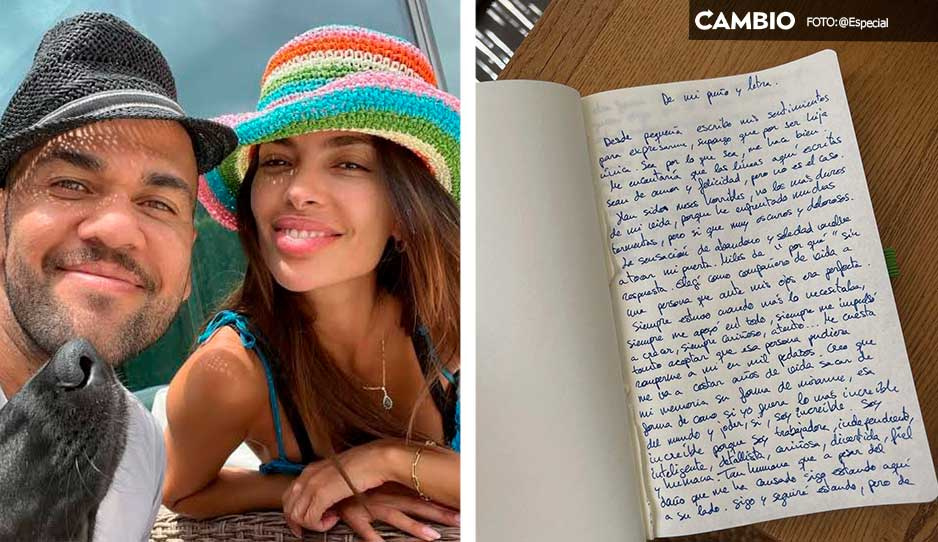 CAMBIO
FOTO:@Especial
De mi puño y letra.
Desde pequeña escribo mis sentimientos
para expresarme, supongo que por ser hija
única. Sea por lo que sea, me hace bien.
Me encantaría que las líneas aquí escritas
sean de amor y felicidad, pero no es el caso.
Han sido meses horribles, no los más duros
de mi vida, porque he enfrentado muchas
tormentas, pero si que muy oscuros y dolorosos.
La sensación de abandono y soledad vuelve
a tocar mi puerta. Miles de "por qué" sin
respuesta. Elegí como compañero de vida a
una persona que ante mis ojos era perfecta.
Siempre estuvo cuando más lo necesitaba,
siempre me apoyó en todo, siempre me impulsó
a crecer, siempre cariñoso, atento... Me cuesta
tanto aceptar que esa persona pudiera
romperme a mi en mil pedazos. Creo que
me va a costar años de vida sacar de
mi memoria su forma de mirarme, esa
forma de como si yo fuera lo más increíble
del mundo y joder, si, soy increíble. Soy
increíble porque soy trabajadora, independiente,
inteligente, detallista, cariñosa, divertida, fiel
y humana. Tan humana que a pesar del
daño que me ha causado sigo estando aquí
a su lado. Sigo y seguiré estando, pero de